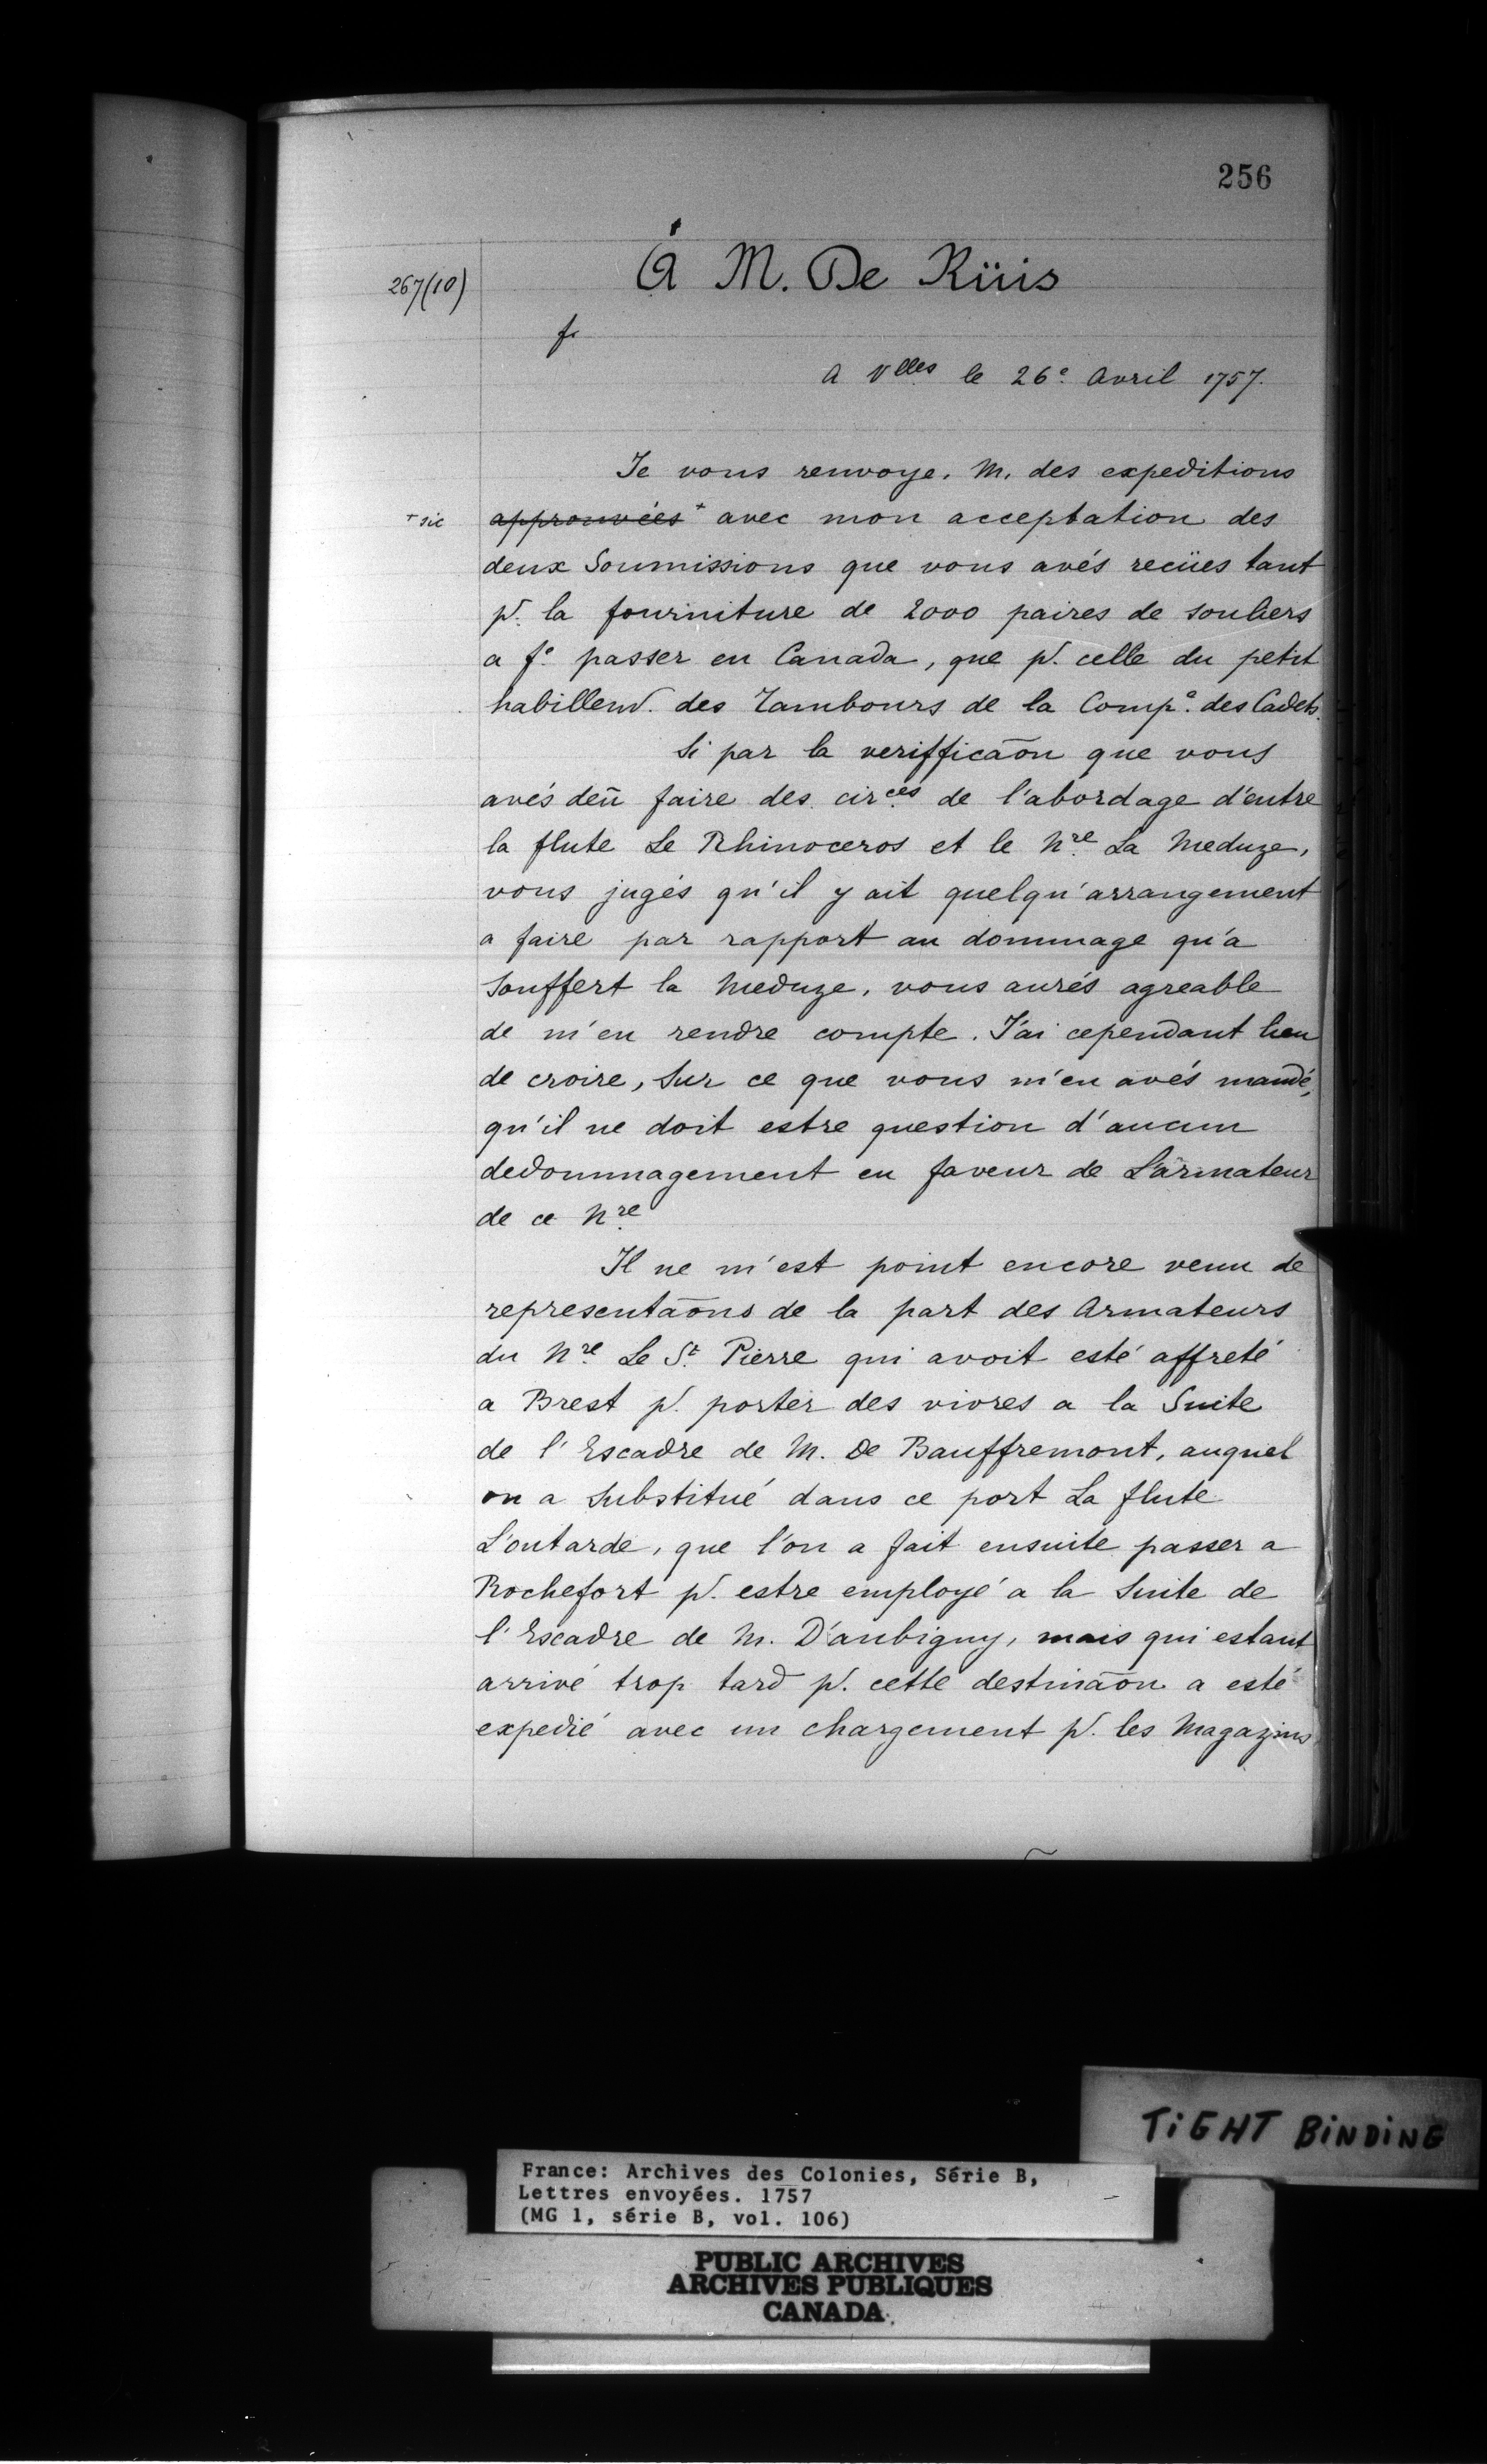 256
267(10)
À M. De Rüis
fo
A Vlles le 26e Avril 1757.
Je vous renvoye, M. des expeditions
+ sic
approuvées + avec mon acceptation des
deux Soumissions que vous avés recües tant
pr. la fourniture de 2000 paires de souliers
a fe. passer en Canada, que pr. celle du petit
habillemt. des Tambours de la Compe. des Cadets.
Si par la veriffica͞on que vous
avés deu͞ faire des circes. de l'abordage d'entre
la flute Le Rhinoceros et le Nre. La Meduze,
vous jugés qu'il y ait quelqu'arrangement
a faire par rapport au dommage qu'a
Souffert la Meduze, vous aurés agreable
de m'en rendre compte. J'ai cependant lieu
de croire, Sur ce que vous m'en avés mandé,
qu'il ne doit estre question d'aucun
dedommagement en faveur de L'armateur
de ce Nre.
Il ne m'est point encore venu de
representa͞ons de la part des Armateurs
du Nre. Le St. Pierre qui avoit esté affreté
a Brest pr. porter des vivres a la Suite
de l'Escadre de M. De Bauffremont, auquel
on a Substitué dans ce port La flute
L'outarde, que l'on a fait ensuite passer a
Rochefort pr. estre employé a la Suite de
l'Escadre de M. D'aubigny, mais qui estant
arrivé trop tard pr. cette destina͞on a esté
expedié avec un chargement pr. les Magazins
TiGHT BiNDiNG
France: Archives des Colonies, Série B,
Lettres envoyées. 1757
(MG 1, série B, vol. 106)
PUBLIC ARCHIVES
ARCHIVES PUBLIQUES
CANADA